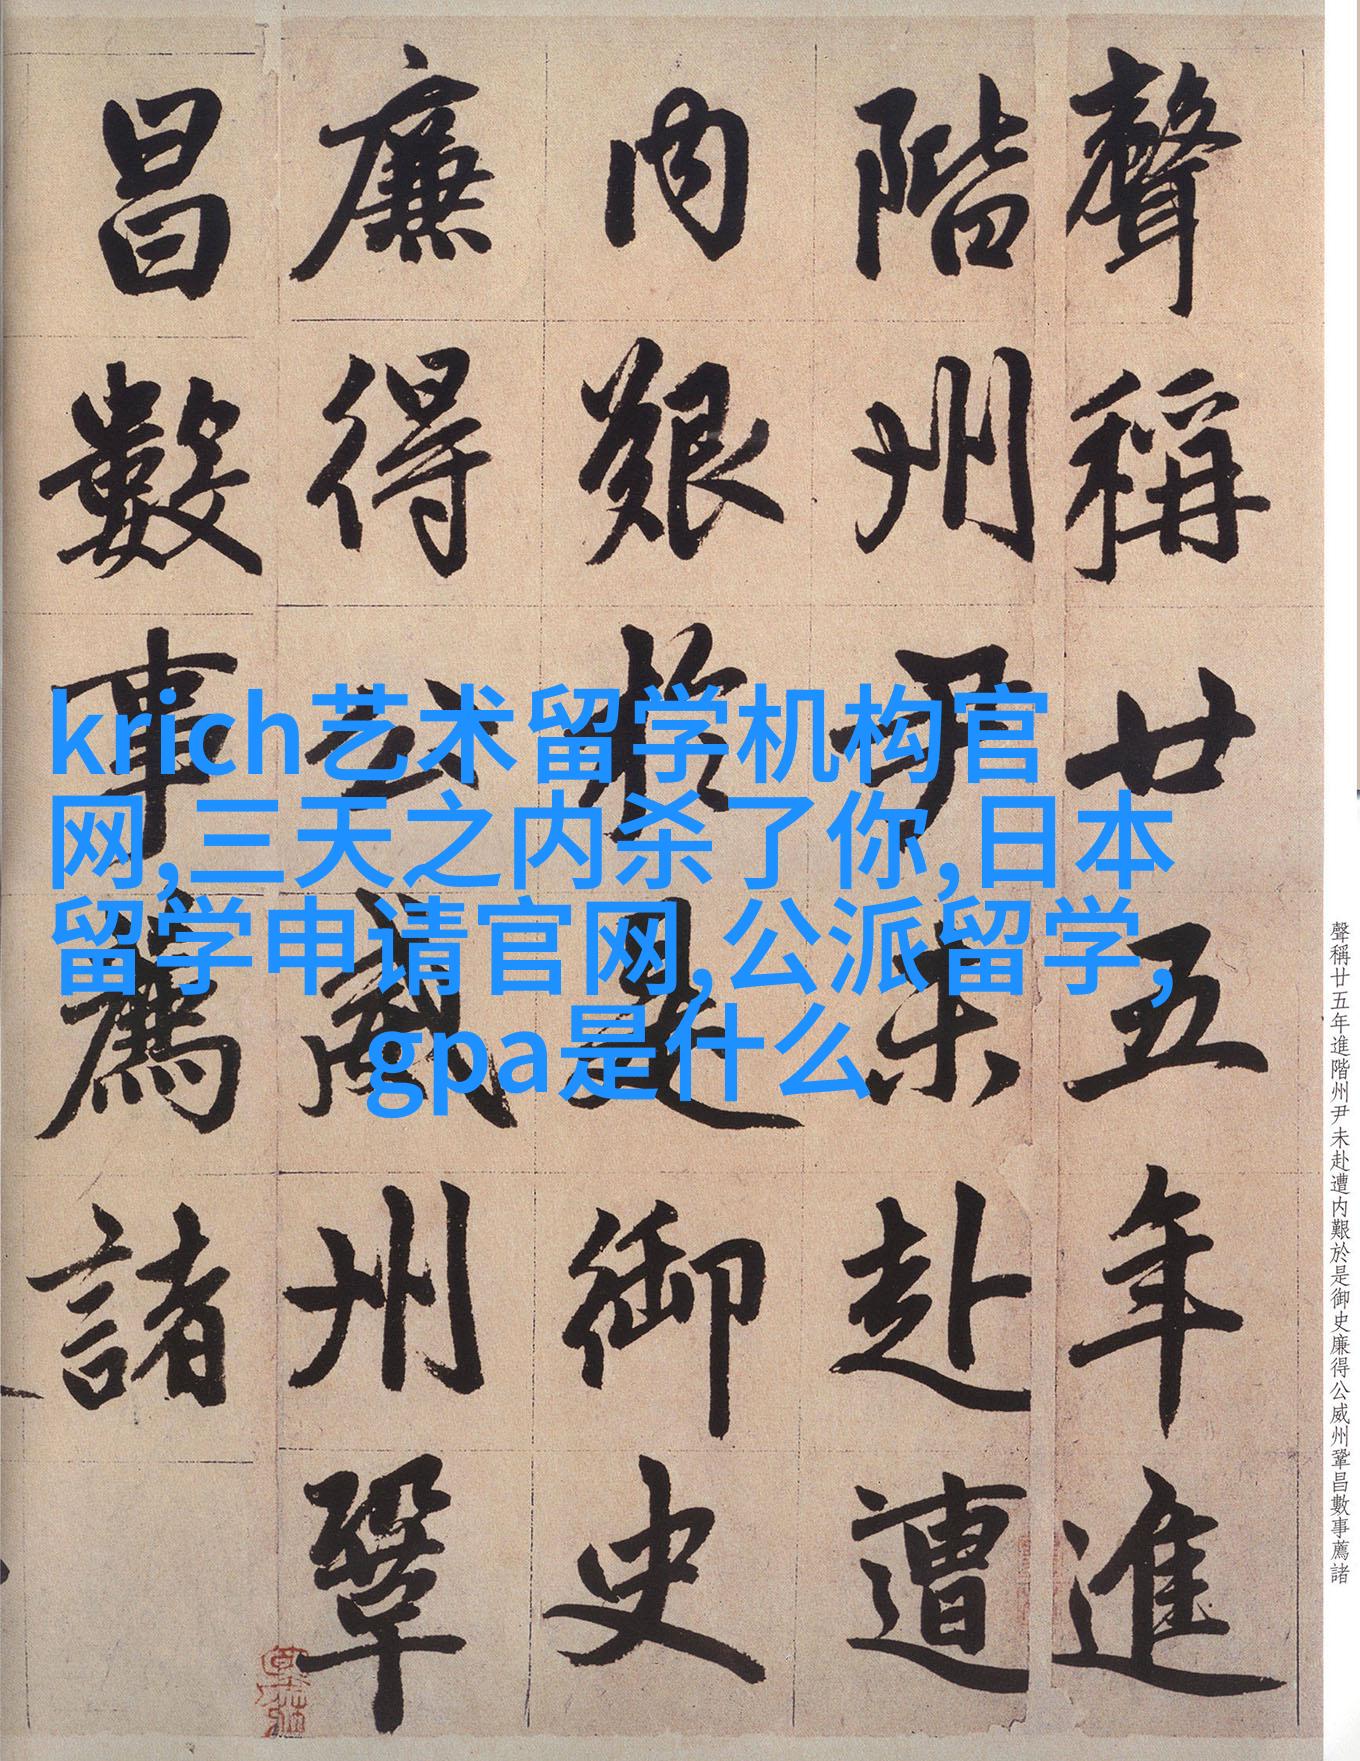 聲稱廿五年進
階州尹未赴遭
内艱於是御史
廉得公威州鞏
昌數事薦諸
krich艺术留学机构官
网,三天之内杀了你,日本
留学申请官网,公派留学,
gpa是什么
聲稱廿五年進階州尹未赴遭内艱於是御史廉得公威州鞏昌數事薦諸